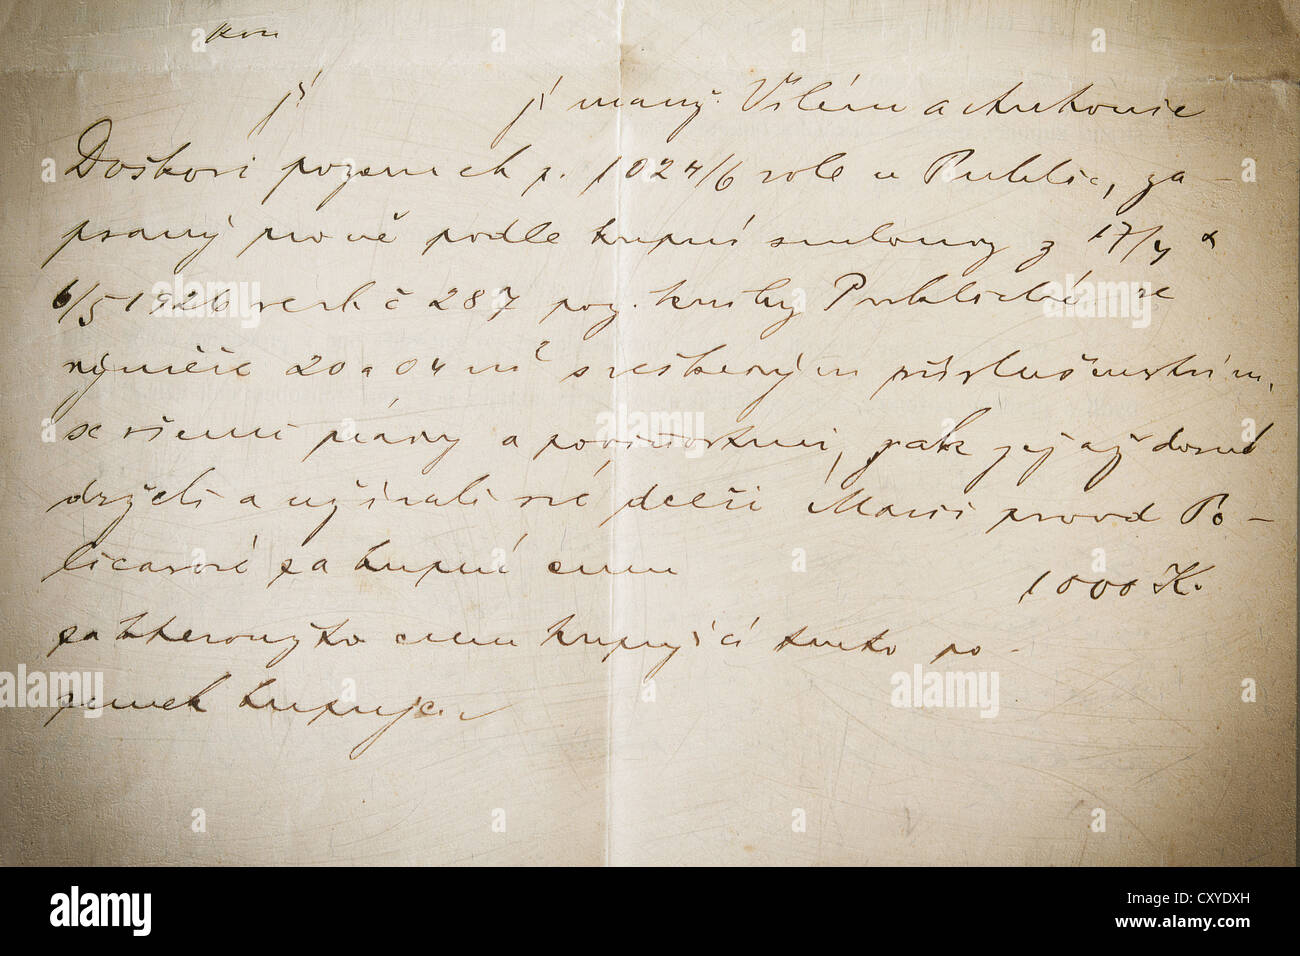 jí jí manž. Vilém a Antonie
Doškovi pozemek p. 1024/6 role v Public, za-
psaný prvě podle kupní smlouvy z 17/4 a
6/5 1926 veskč 287 poz. knihy Publické ve
výměře 20 a 04 m² s veškerým příslušenstvím,
se všemi právy a povinnostmi, jak jej až dosud
drželi a užívali své dceři Marii provd Po-
licarové za kupní cenu 1000 K.
za kteroužto cenu kupující tento po-
zemek kupuje.
alamy
Image ID: CXYDXH
www.alamy.com